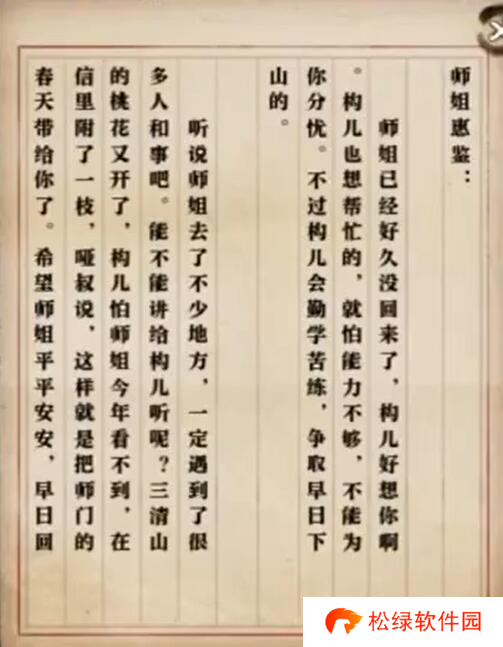 师姐惠鉴：
师姐已经好久没回来了，构儿好想你啊
。构儿也想帮忙的，就怕能力不够，不能为
你分忧。不过构儿会勤学苦练，争取早日下
山的。
听说师姐去了不少地方，一定遇到了很
多人和事吧。能不能讲给构儿听呢？三清山
的桃花又开了，构儿怕师姐今年看不到，在
信里附了一枝，哑叔说，这样就是把师门的
春天带给你了。希望师姐平平安安，早日回
松绿软件园